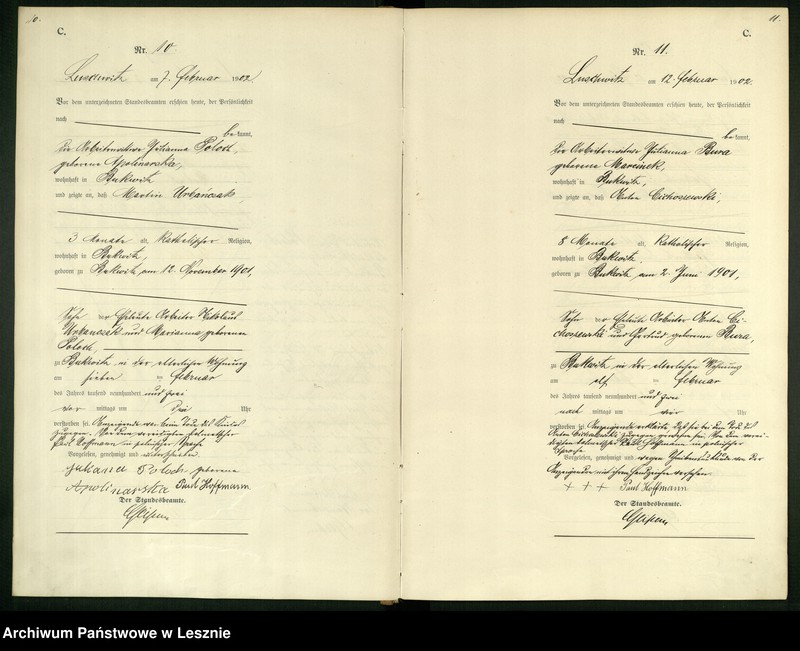 10.
C.
Nr. 10
Luschwitz am 7. Februar 1902
Vor dem unterzeichneten Standesbeamten erschien heute, der Persönlichkeit
nach
be kannt,
die Arbeiterwitwe Julianna Poloch,
geborene Apolinarska,
wohnhaft in Bukwitz
und zeigte an, daß Martin Urbańczak,
3 Monate alt, katholischer Religion,
wohnhaft in Bukwitz,
geboren zu Bukwitz am 12. November 1901,
Sohn der Eheleute Arbeiter
Urbanczak und Marianna geborenen
Poloch,
zu Bukwitz in der elterlichen Wohnung
am sieben ten Februar
des Jahres tausend neunhundert und zwei
vor mittags um drei Uhr
verstorben sei. Anzeigende war beim Tode des Kindes
zugegen.
Paul Hoffmann in polnischer Sprache
Vorgelesen, genehmigt und unterschrieben
Juliana Poloch geborene
Apolinarska Paul Hoffmann
Der Standesbeamte.
11.
C.
Nr. 11.
Luschwitz am 12. Februar 1902.
Vor dem unterzeichneten Standesbeamten erschien heute, der Persönlichkeit
nach
be kannt,
die Arbeiterwitwe Julianna Bura
geborene Marcinek,
wohnhaft in Bukwitz,
und zeigte an, daß Anton Cichoszewski,
8 Monate alt, katholischer Religion,
wohnhaft in Bukwitz.
geboren zu Bukwitz am 2. Juni 1901,
Sohn der Eheleute Arbeiter Anton Ci-
choszewski und Gertrud geborenen Bura,
zu Bukwitz in der elterlichen Wohnung
am elf ten Februar
des Jahres tausend neunhundert und zwei
nach mittags um vier Uhr
verstorben sei. Anzeigende erklärte, daß sie bei dem Tod des
Anton Cichoszewski zugegen gewesen sei. Von dem verei-
digten Paul Hoffmann in polnischer
Sprache
Vorgelesen, genehmigt und wegen Schreibensunkunde von der
Anzeigenden mit ihrem Handzeichen versehen.
+ + + Paul Hoffmann
Der Standesbeamte.
Archiwum Państwowe w Lesznie